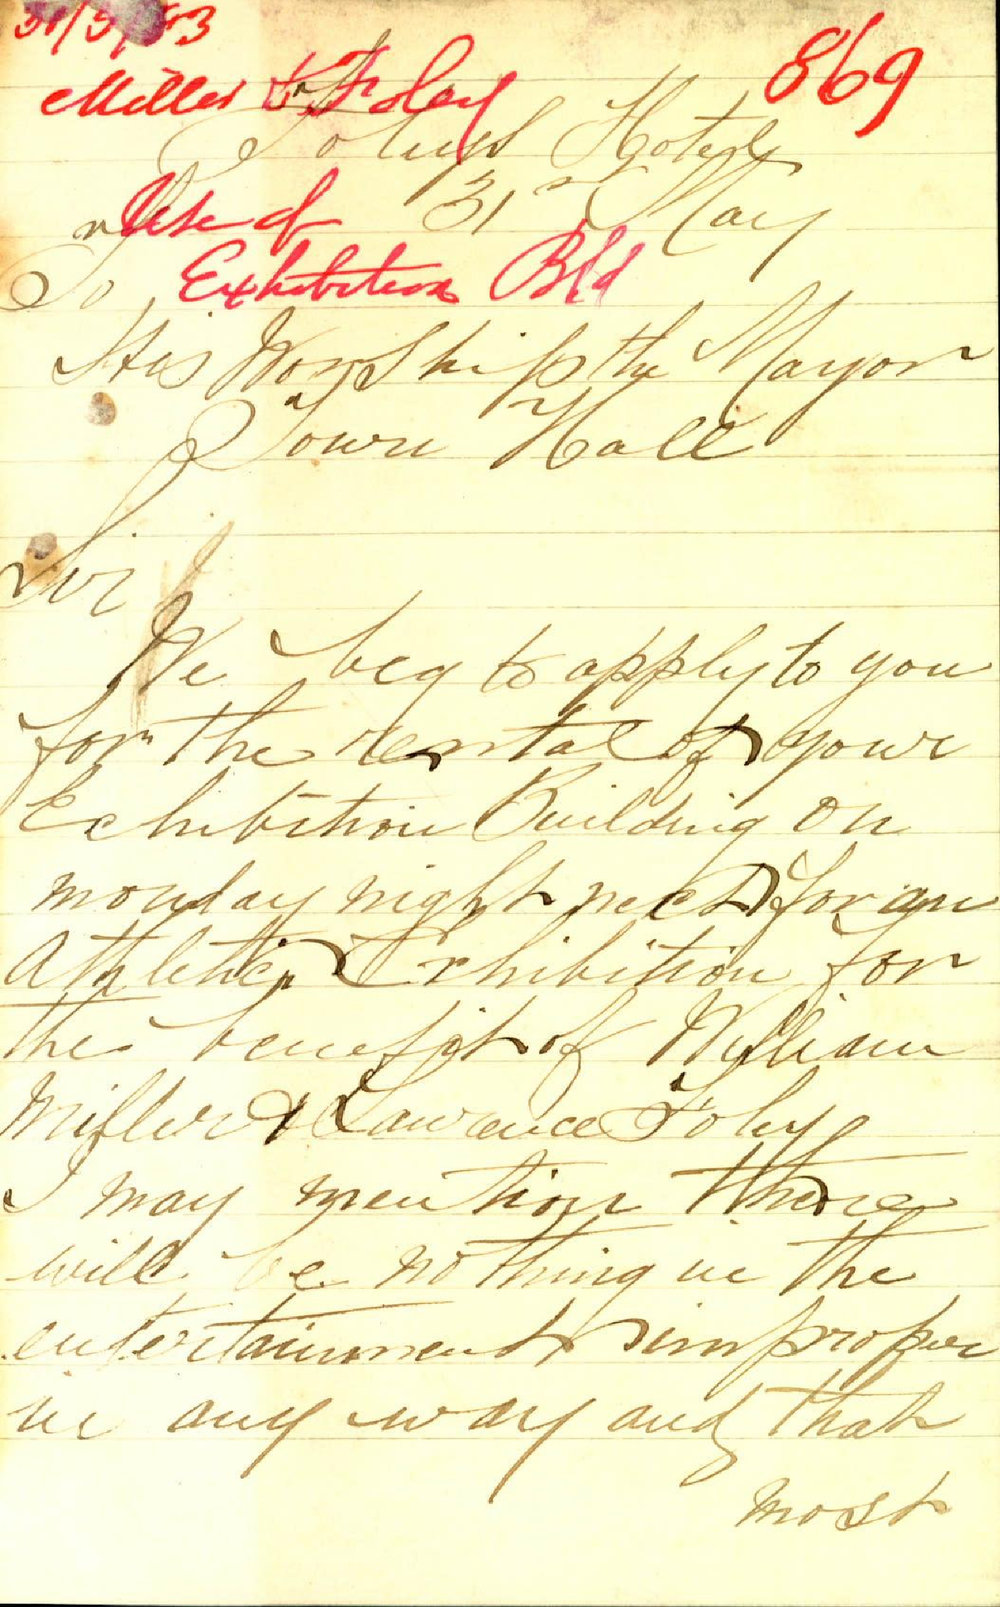 31/5/83
869
Miller & Foley
Foleys Hotel
Use of 31st May
To Exhibition Bld
His Worship the Mayor
Town Hall
Sir
We beg to apply to you
for the rental of your
Exhibition Building on
monday night next for an
Athletic Exhibition for
the benefit of William
Miller & Lawrence Foley
I may mention there
will be nothing in the
entertainment improper
in any way and that
most